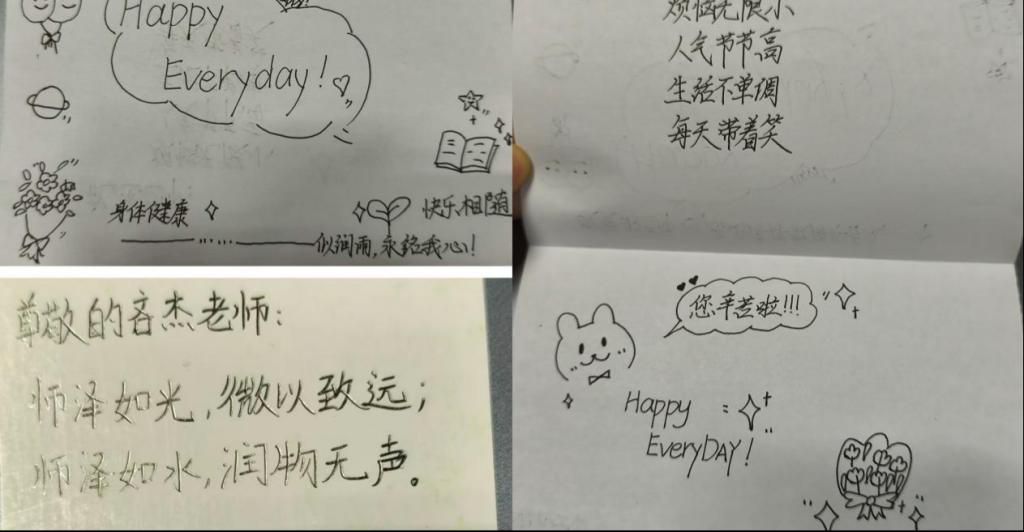 Happy
Everyday!
身体健康
快乐相随
似润雨,永铭我心!
尊敬的吝杰老师:
师泽如光,微以致远;
师泽如水,润物无声。
烦恼无限小
人气节节高
生活不单调
每天带着笑
您辛苦啦!!!
Happy
EveryDAY!